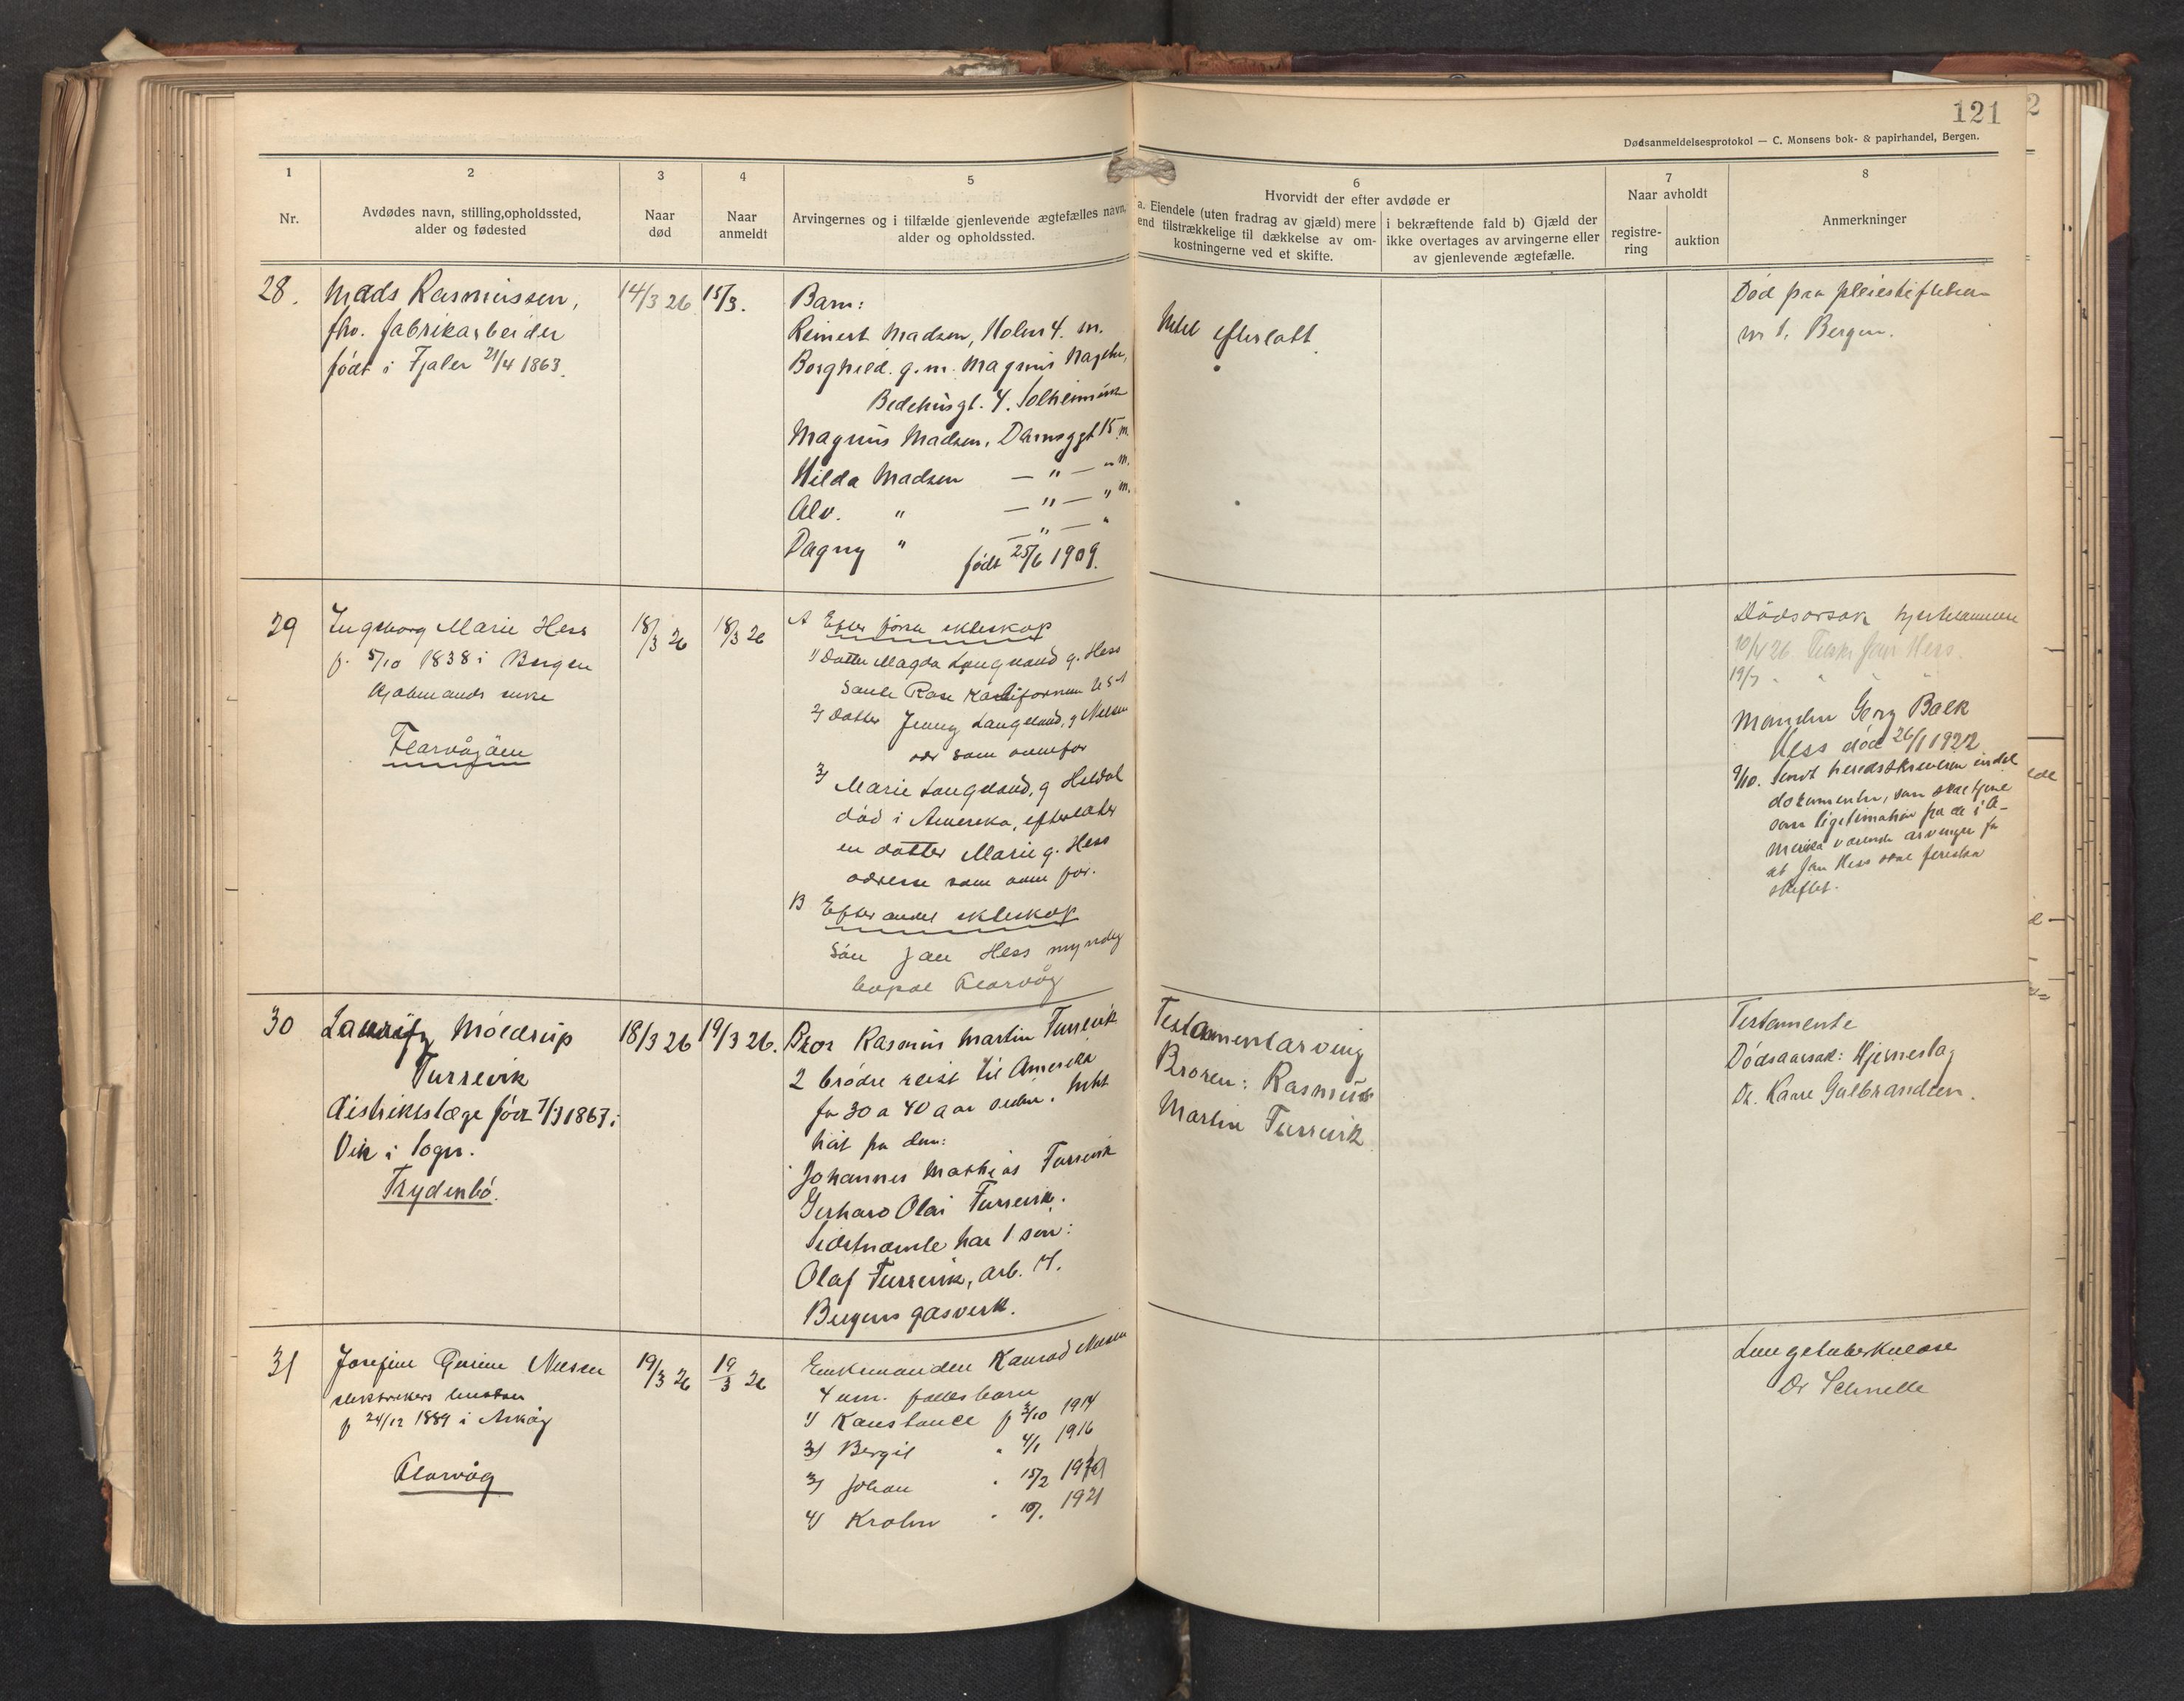 121
Dødsanmeldelsesprotokol — C. Monsens bok- & papirhandel, Bergen.
1
Nr.
2
Avdødes navn, stilling, opholdssted,
alder og fødested
3
Naar
død
4
Naar
anmeldt
5
Arvingernes og i tilfælde gjenlevende ægtefælles navn,
alder og opholdssted.
6
Hvorvidt der efter avdøde er
a. Eiendele (uten fradrag av gjæld) mere
end tilstrækkelige til dækkelse av om-
kostningerne ved et skifte.
i bekræftende fald b) Gjæld der
ikke overtages av arvingerne eller
av gjenlevende ægtefælle.
7
Naar avholdt
registre-
ring
auktion
8
Anmerkninger
28.
Mads Rasmussen,
fhv. fabrikarbeider
født i Fjaler 21/4 1863.
14/3 26
15/3.
Barn:
Reinert Madsen, Holm 4. m.
Borghild. g.m. Magnus
Bedehusgt. 4. Solheimsvik
Magnus Madsen, Damsggt 15 m.
Hilda Madsen — " — " m.
Alv. " — " — " m.
Dagny " — " — "
født 25/6 1909.
Intet efterlatt.
Død paa pleiestiftelsen
nr 1. Bergen.
29
Ingeborg Marie Hess
f. 5/10 1838 i Bergen
Kjøbmands enke
Florvågøen
18/3 26
18/3 26
A Efter første ekteskap
1) Datter Magda Langeland g. Hess
Santa Rosa Kalifornien USA
2) Datter Jenny Langeland, g Nelsen
adr som ovenfor
3) Marie Langeland, g Heldal
død i Amerika, efterlater
en datter Marie g. Hess
adresse som oven for.
B Efter andet ekteskap
Søn Jan Hess myndig
bopæl Florvåg
Dødsorsak hjertelammelse
10/4 26. Jan Hess.
19/7 " " "
Manden Georg Balk
Hess død 26/1 1922
9/10. Sendt herredsskriveren endel
dokumenter, som skal tjene
som legitimation fra de i A-
merika værende arvinger for
at Jan Hess skal forestaa
skiftet.
30
Lauritz Möldrup
Turrevik
distriktslæge född 7/3 1863 i
Vik i Sogn.
Frydenbö.
18/3 26
19/3 26.
Bror Rasmus Martin Turrevik
2 brödre reist til Amerika
for 30 a 40 aar siden. Intet
hört fra dem:
Johannes Mathias Turrevik
Gerhard Olai Turrevik.
Sidstnævnte har 1 sön:
Olaf Turrevik, arb. v.
Bergens gasverk.
Testamentarving
Broren: Rasmus
Martin Turrevik
Testamente
Dödsaarsak: Hjerneslag
Dr. Kaare Gulbrandsen.
31
Josefine Gurine Nilsen
elektrikers hustru
f 24/12 1889 i Askøy
Florvåg
19/3 26
19/3 26
Enkemanden Konrad Nilsen
4 um. fælles barn
1) Konstance f 3/10 1914
2) Bergit " 4/1 1916
3) Johan " 15/2 1919
4) Krohn " 1921
Lungetuberkulose
Dr Schnelle